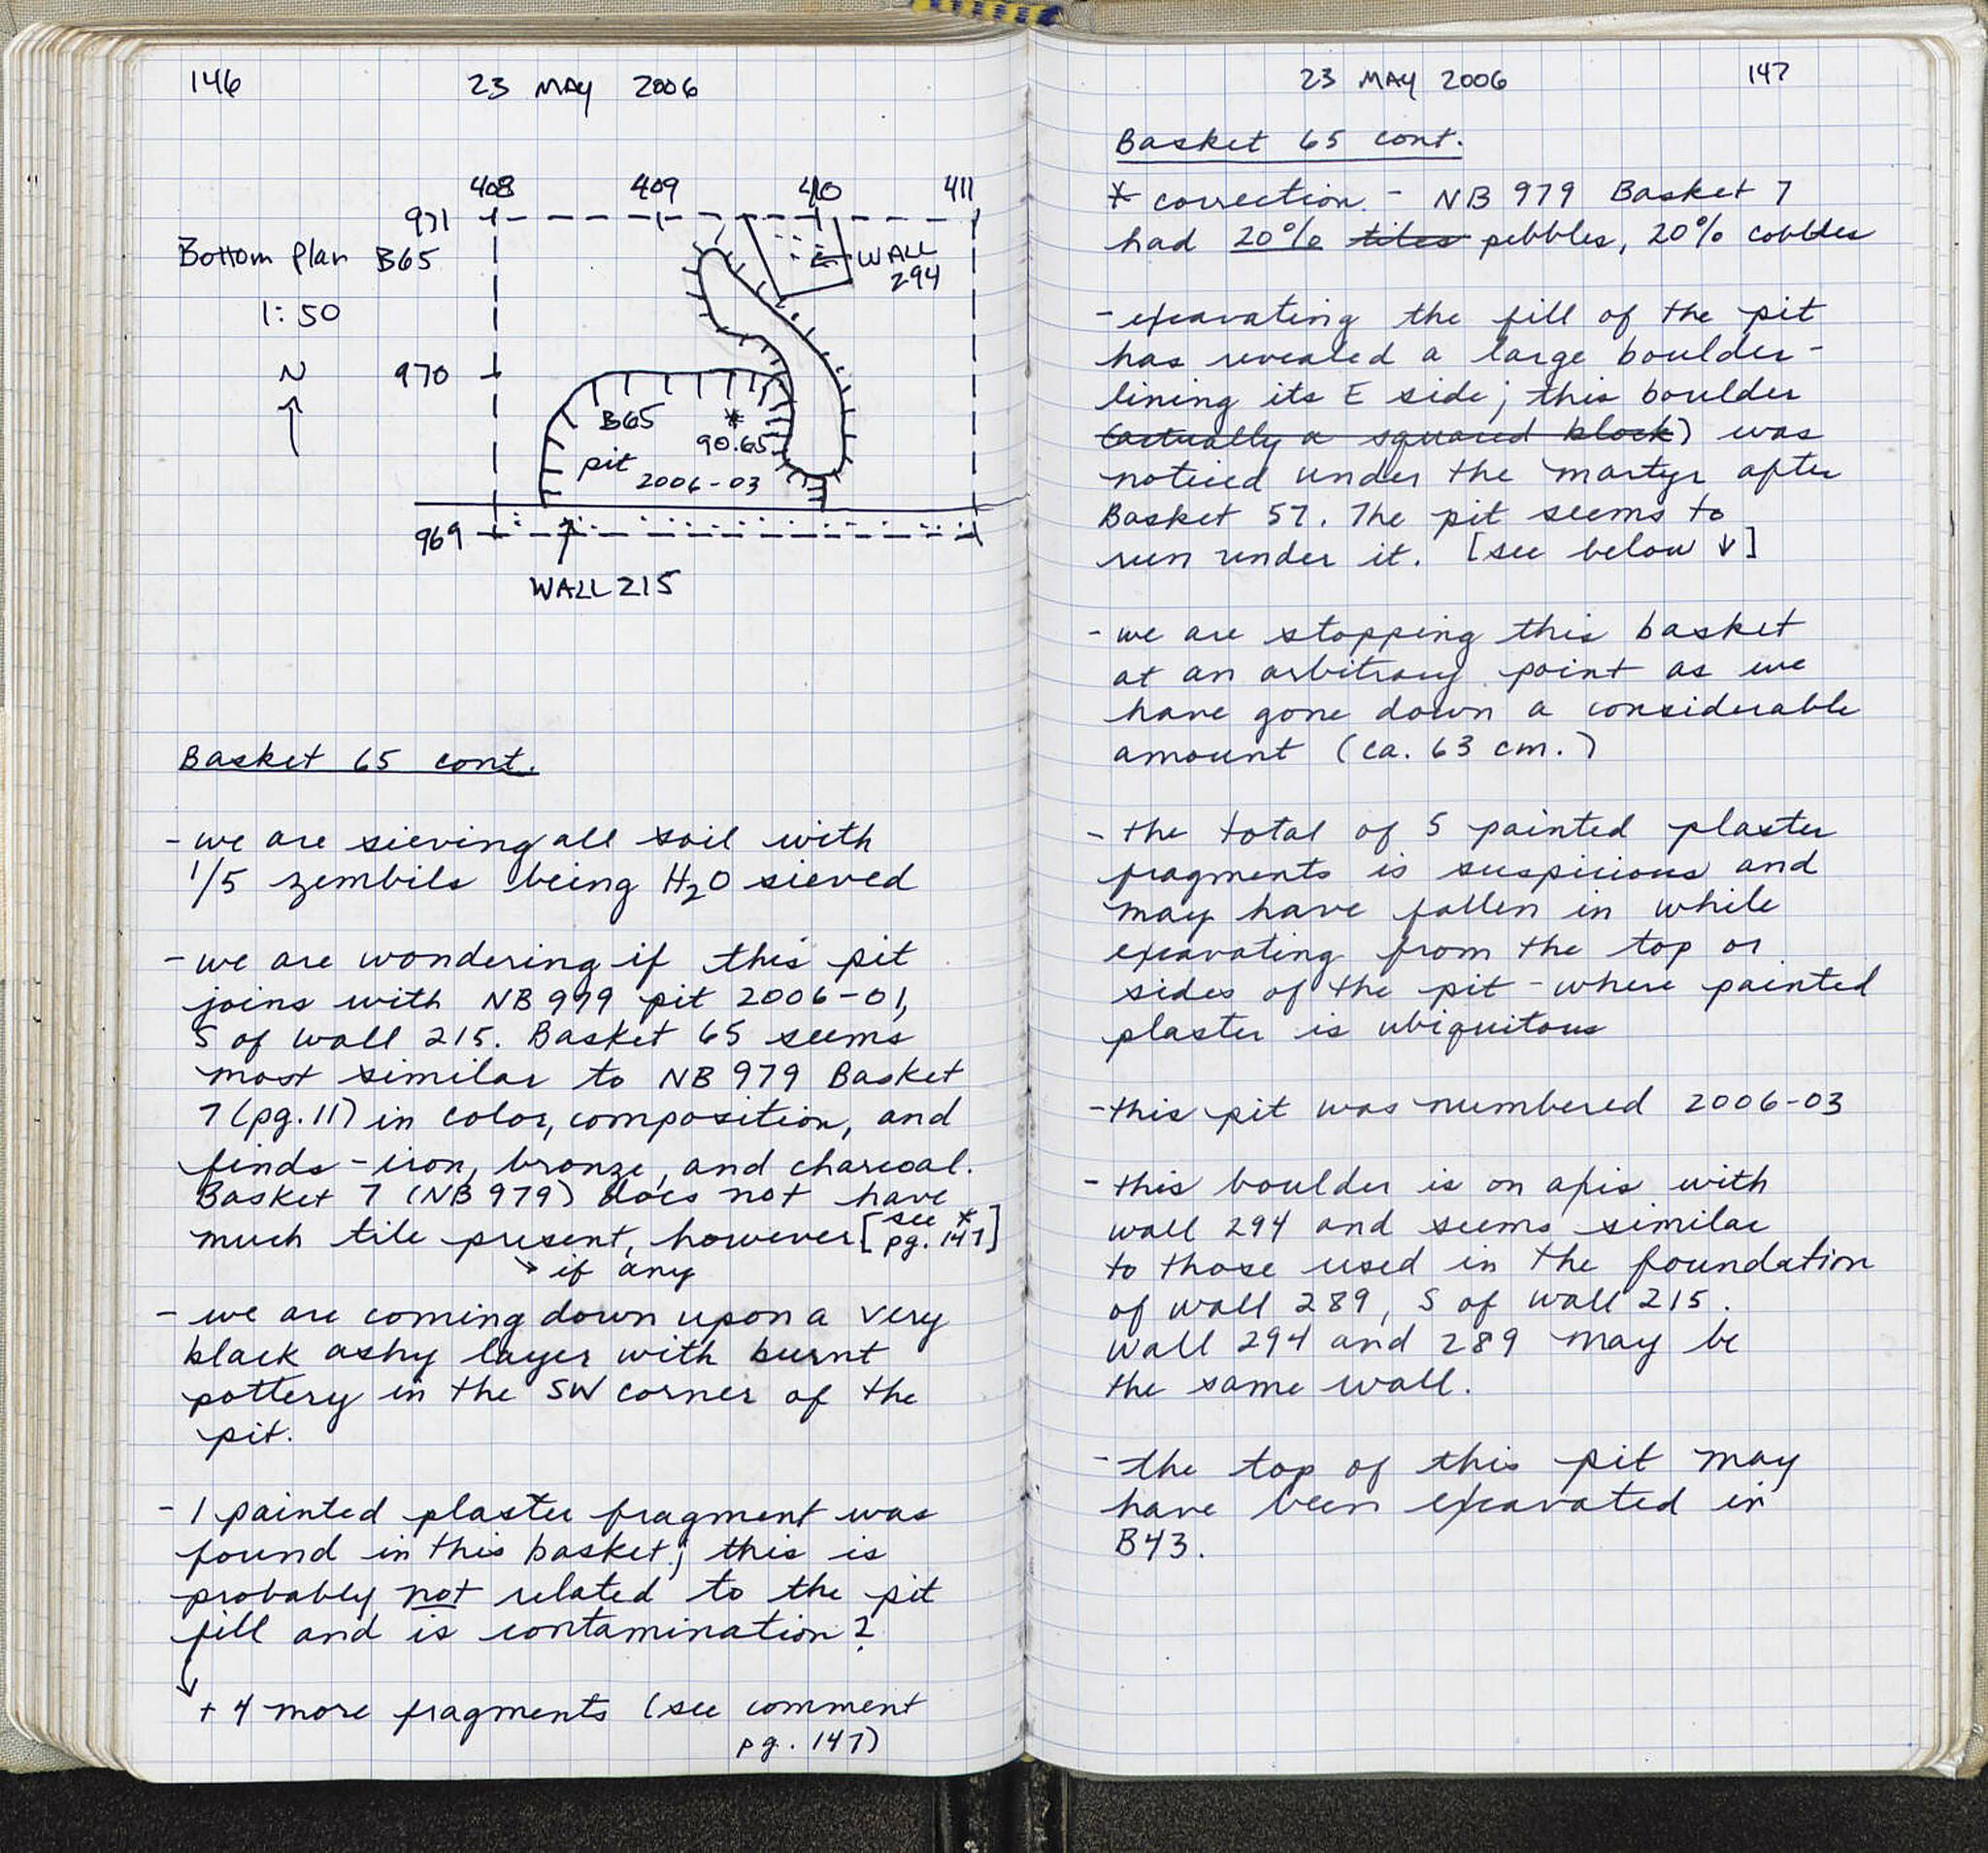 146
23 MAY 2006
408 409 410 411
971
Bottom Plan B65
WALL
294
1:50
N
970
B65
90.65
pit
2006-03
969
WALL 215
Basket 65 cont.
- we are sieving all soil with
1/5 zembils being H2O sieved
- we are wondering if this pit
joins with NB 979 pit 2006-01,
S of wall 215. Basket 65 seems
most similar to NB 979 Basket
7 (pg. 11) in color, composition, and
finds - iron, bronze, and charcoal.
Basket 7 (NB 979) does not have
much tile present, however [see *
pg. 147]
if any
- we are coming down upon a very
black ashy layer with burnt
pottery in the SW corner of the
pit.
- 1 painted plaster fragment was
found in this basket; this is
probably not related to the pit
fill and is contamination?
+ 4 more fragments (see comment
pg. 147)
23 MAY 2006
147
Basket 65 cont.
* correction - NB 979 Basket 7
had 20% tiles pebbles, 20% cobbles
- excavating the fill of the pit
has revealed a large boulder -
lining its E side; this boulder
(actually a squared block) was
noticed under the martyr after
Basket 57. The pit seems to
run under it. [see below ↓]
- we are stopping this basket
at an arbitrary point as we
have gone down a considerable
amount (ca. 63 cm.)
- the total of 5 painted plaster
fragments is suspicious and
may have fallen in while
excavating from the top or
sides of the pit - where painted
plaster is ubiquitous
- this pit was numbered 2006-03
- this boulder is on axis with
wall 294 and seems similar
to those used in the foundation
of wall 289, S of wall 215.
Wall 294 and 289 may be
the same wall.
- the top of this pit may
have been excavated in
B43.